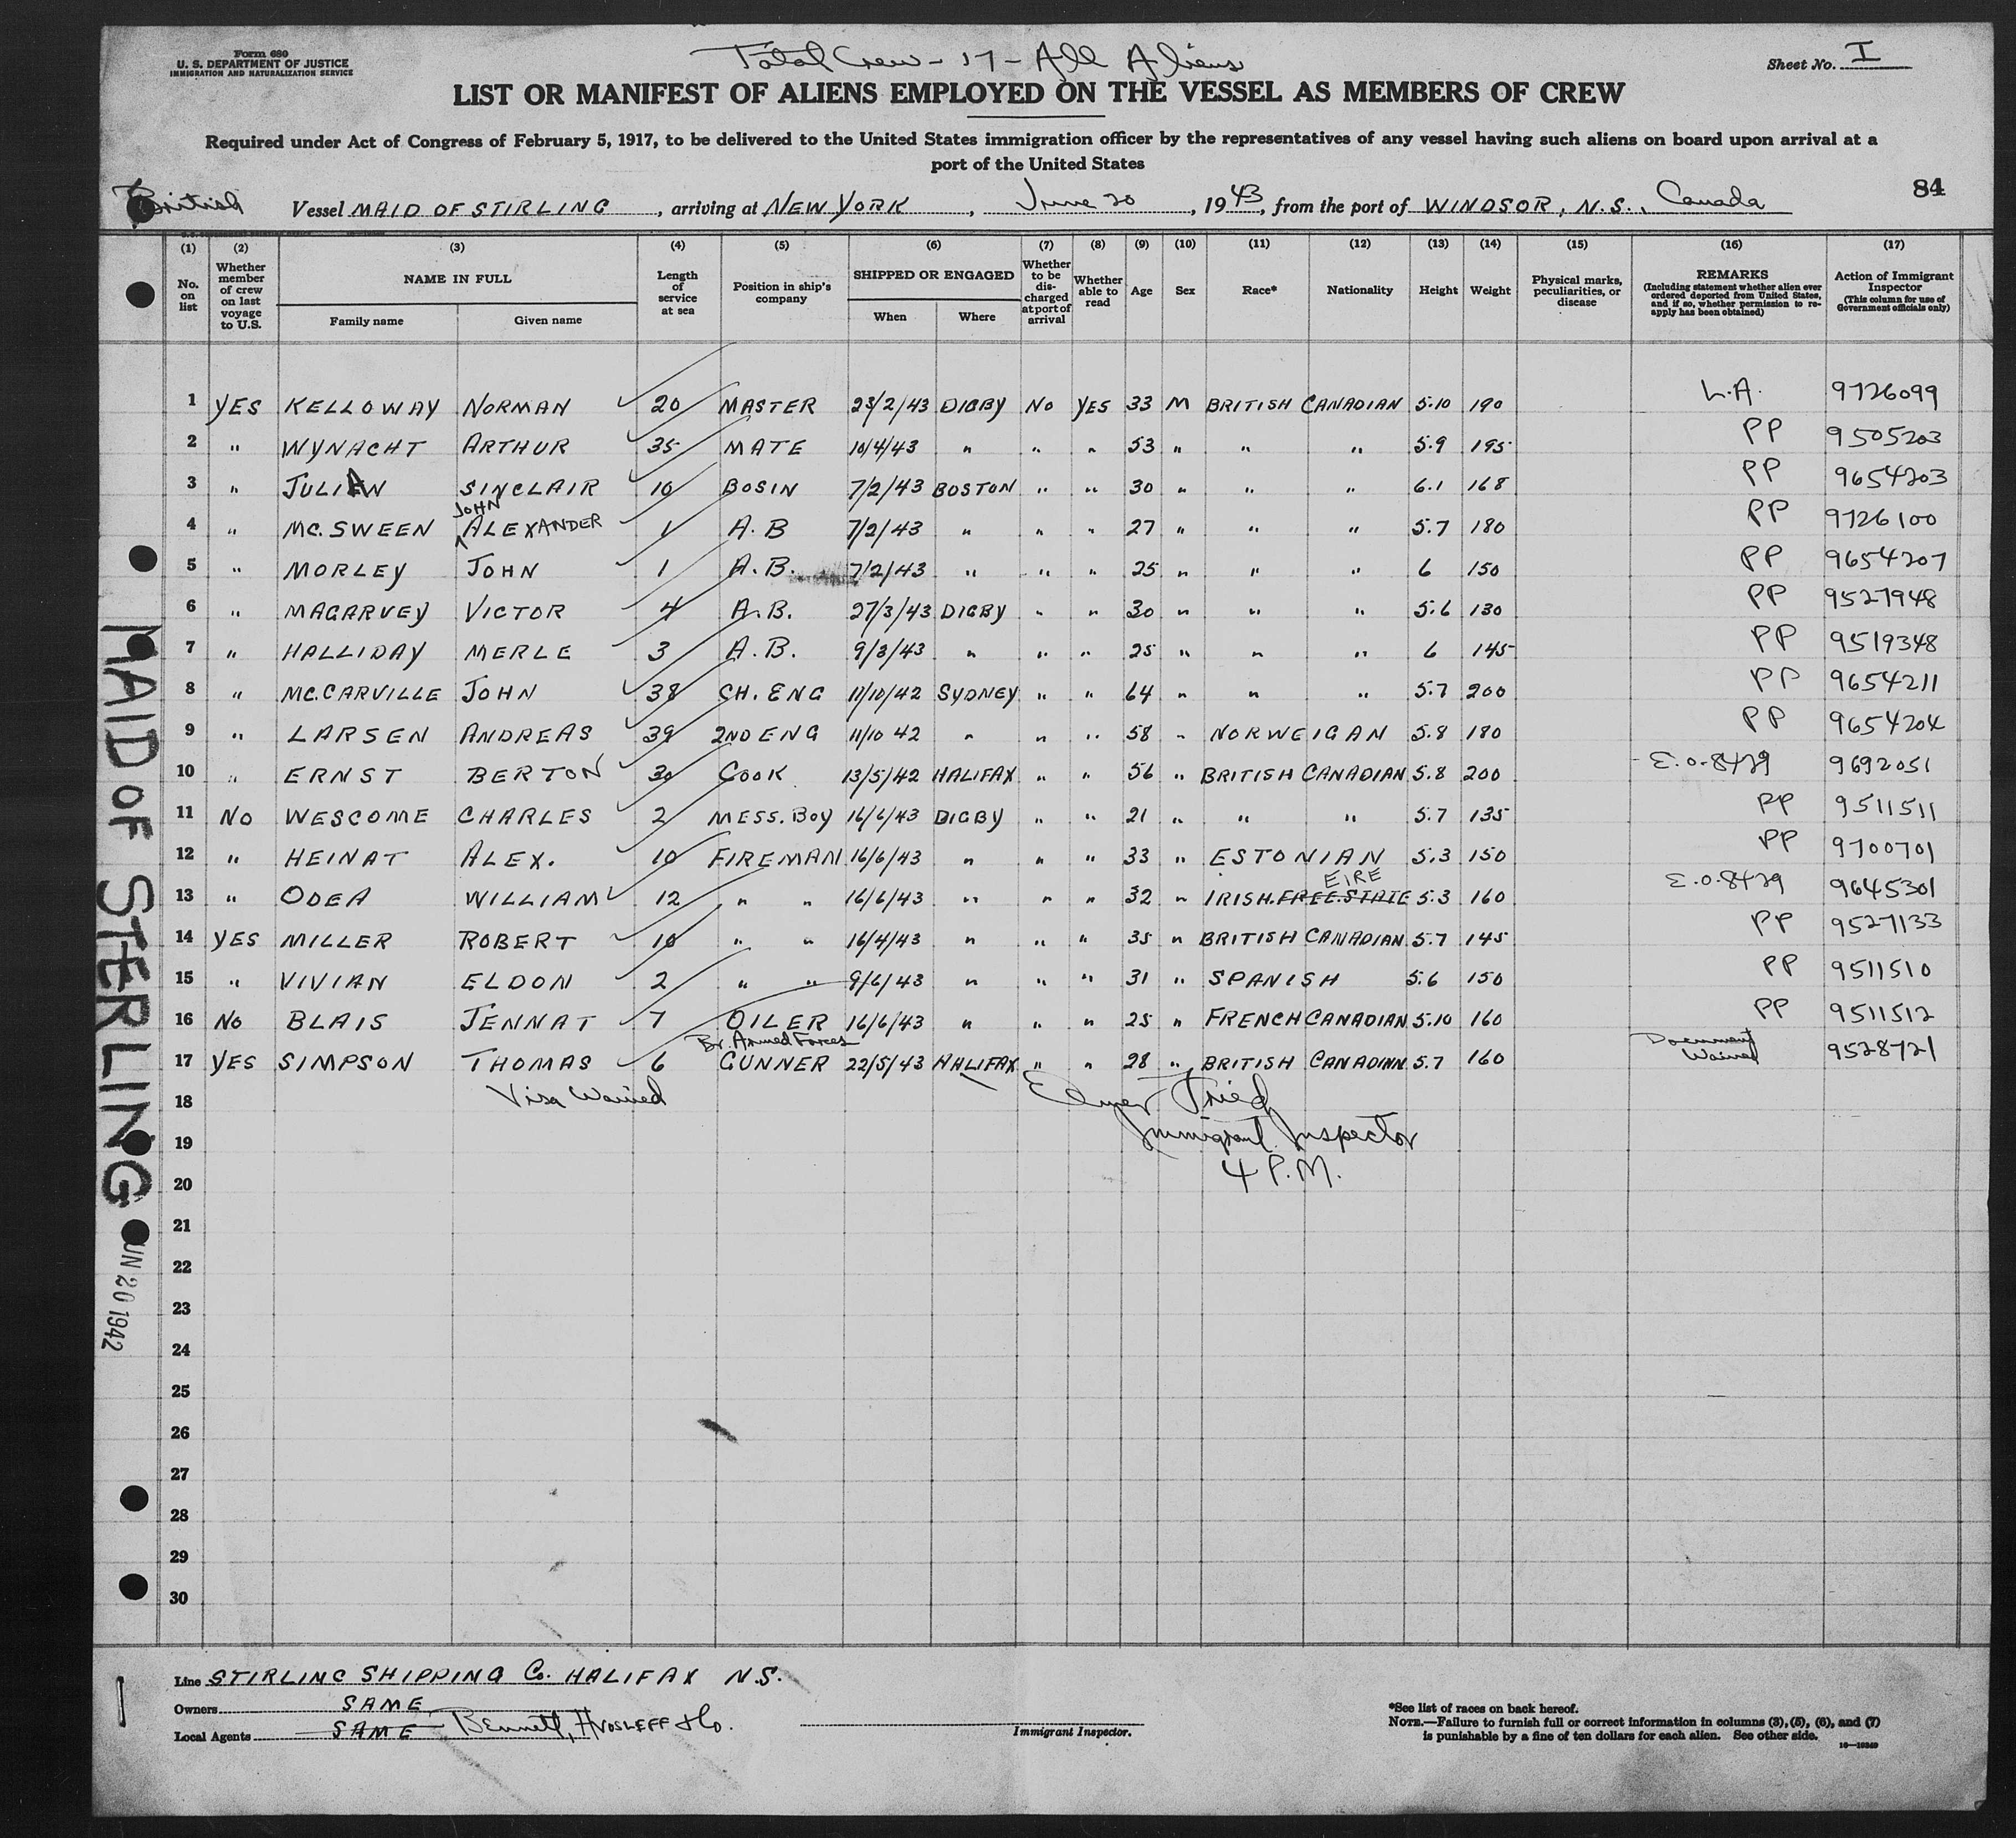 Form 680
U. S. DEPARTMENT OF JUSTICE
IMMIGRATION AND NATURALIZATION SERVICE
Total Crew - 17 - All Aliens
Sheet No. I
LIST OR MANIFEST OF ALIENS EMPLOYED ON THE VESSEL AS MEMBERS OF CREW
Required under Act of Congress of February 5, 1917, to be delivered to the United States immigration officer by the representatives of any vessel having such aliens on board upon arrival at a
port of the United States
84
British Vessel MAID OF STIRLING, arriving at NEW YORK, June 20, 1943, from the port of WINDSOR, N.S., Canada
(1) (2) (3) (4) (5) (6) (7) (8) (9) (10) (11) (12) (13) (14) (15) (16) (17)
No. on list
Whether member of crew on last voyage to U.S.
NAME IN FULL
Family name Given name
Length of service at sea
Position in ship's company
SHIPPED OR ENGAGED
When Where
Whether to be discharged at port of arrival
Whether able to read
Age
Sex
Race*
Nationality
Height
Weight
Physical marks, peculiarities, or disease
REMARKS
(Including statement whether alien ever ordered deported from United States, and if so, whether permission to re-apply has been obtained)
Action of Immigrant Inspector
(This column for use of Government officials only)
1 YES KELLOWAY NORMAN 20 MASTER 23/2/43 DIGBY NO YES 33 M BRITISH CANADIAN 5.10 190 L.A. 9726099
2 " WYNACHT ARTHUR 35 MATE 10/4/43 " " " 53 " " " 5.9 195 PP 9505203
3 " JULIAN SINCLAIR 10 BOSIN 7/2/43 BOSTON " " 30 " " " 6.1 168 PP 9654203
4 " MC.SWEEN JOHN ALEXANDER 1 A.B 7/2/43 " " " 27 " " " 5.7 180 PP 9726100
5 " MORLEY JOHN 1 A.B. 7/2/43 " " " 25 " " " 6 150 PP 9654207
6 " MAGARVEY VICTOR 4 A.B. 27/3/43 DIGBY " " 30 " " " 5.6 130 PP 9527948
7 " HALLIDAY MERLE 3 A.B. 9/3/43 " " " 25 " " " 6 145 PP 9519348
8 " MC.CARVILLE JOHN 38 CH. ENG 11/10/42 SYDNEY " " 64 " " " 5.7 200 PP 9654211
9 " LARSEN ANDREAS 39 2ND ENG 11/10 42 " " " 58 " NORWEIGAN 5.8 180 PP 9654204
10 " ERNST BERTON 30 COOK 13/5/42 HALIFAX " " 56 " BRITISH CANADIAN 5.8 200 E.O-8429 9692051
11 NO WESCOME CHARLES 2 MESS. BOY 16/6/43 DIGBY " " 21 " " " 5.7 135 PP 9511511
12 " HEINAT ALEX. 10 FIREMAN 16/6/43 " " " 33 " ESTONIAN 5.3 150 PP 9700701
13 " ODEA WILLIAM 12 " " 16/6/43 " " " 32 " IRISH. FREE.STATE EIRE 5.3 160 E.O.8429 9645301
14 YES MILLER ROBERT 10 " " 16/4/43 " " " 35 " BRITISH CANADIAN 5.7 145 PP 9527133
15 " VIVIAN ELDON 2 " " 9/6/43 " " " 31 " SPANISH 5.6 150 PP 9511510
16 NO BLAIS JENNAT 7 OILER 16/6/43 " " " 25 " FRENCH CANADIAN 5.10 160 PP 9511512
17 YES SIMPSON THOMAS 6 Br. Armed Forces GUNNER 22/5/43 HALIFAX " " 28 " BRITISH CANADIAN 5.7 160 Document Waived 9528721
18 Visa Waived Elmer Fried
19 Immigrant Inspector
20 4 P.M.
21
22
23
24
25
26
27
28
29
30
MAID OF STERLING
JUN 20 1942
Line STIRLING SHIPPING Co. HALIFAX N.S.
Owners SAME
Local Agents SAME Bennett, HVOSLEFF & Co.
Immigrant Inspector.
*See list of races on back hereof.
NOTE.—Failure to furnish full or correct information in columns (3), (5), (6), and (7)
is punishable by a fine of ten dollars for each alien. See other side.